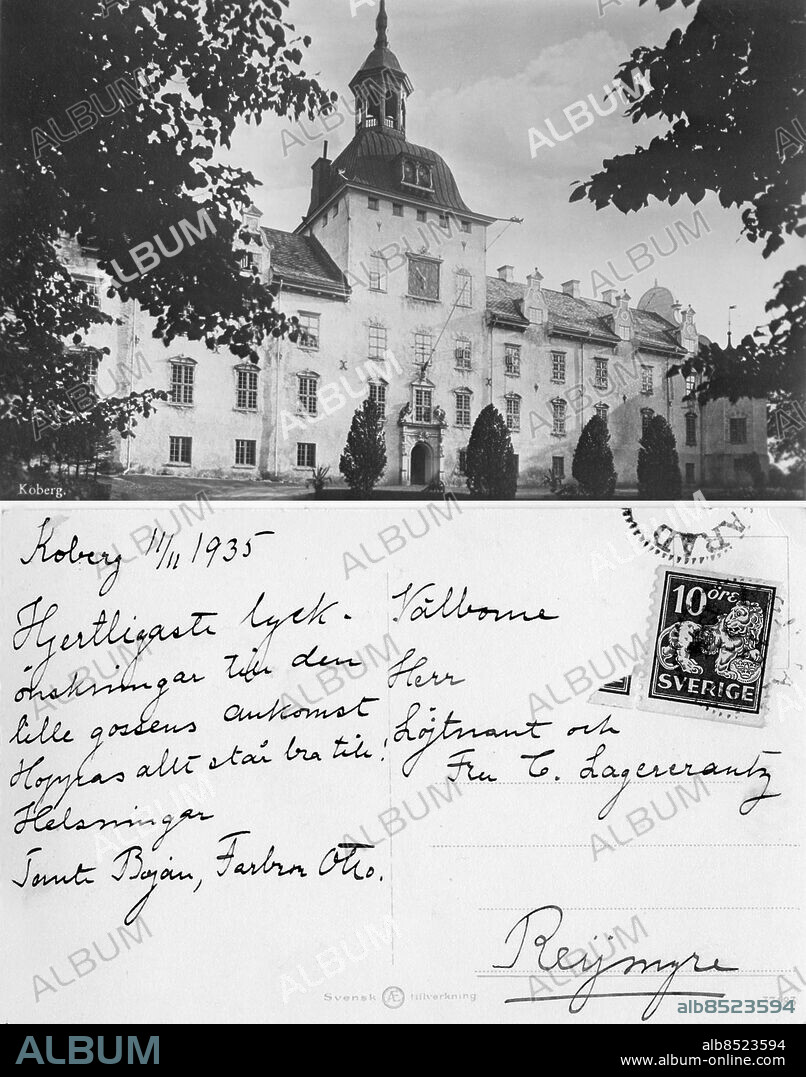 Koberg.
Koberg 11/11 1935
Hjertligaste lyck-
önskningar till den
lille gossens ankomst
Hoppas allt står bra till!
Helsningar
Tante Bojan, Farbror Otto.
Välborne
Herr
Löjtnant och
Fru C. Lagercrantz
Reijmyre
10 öre
SVERIGE
Svensk Æ tillverkning
ALBUM
alb8523594
ALBUM
alb8523594
www.album-online.com